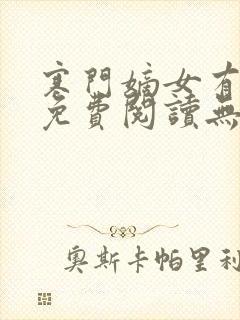 寒門嫡女有
免費閱讀無
奧斯卡帕里